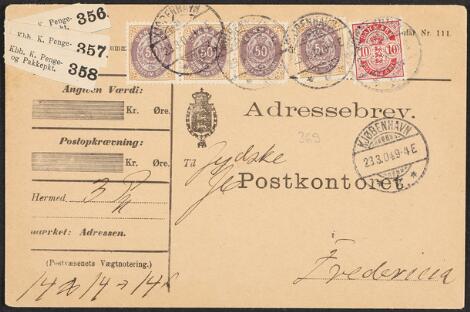 Kbh. K. Penge- 356.
Kbh. K. Penge- 357.
Kbh. K. Penge-
og Pakkepkt. 358
KJØBENHAVN
50
50
50
50
10 10
Nr. 111.
Angiven Værdi:
Kr. Øre.
Postopkrævning:
Kr. Øre.
Hermed 3
mærket: Adressen.
(Postvæsenets Vægtnotering.)
Adressebrev.
369
KJØBENHAVN
23.3.04 9-4 E
Til Jydske
Postkontoret
Fredericia